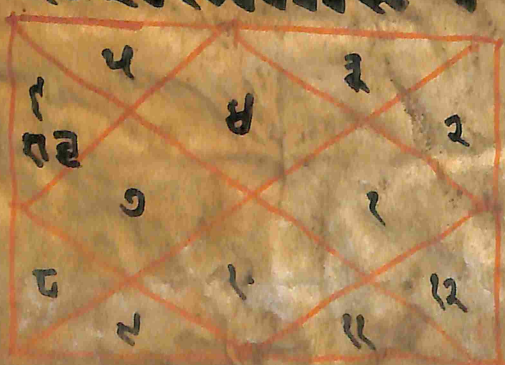 ५ ३
४
२
७ १
८ १० १२
९ ११